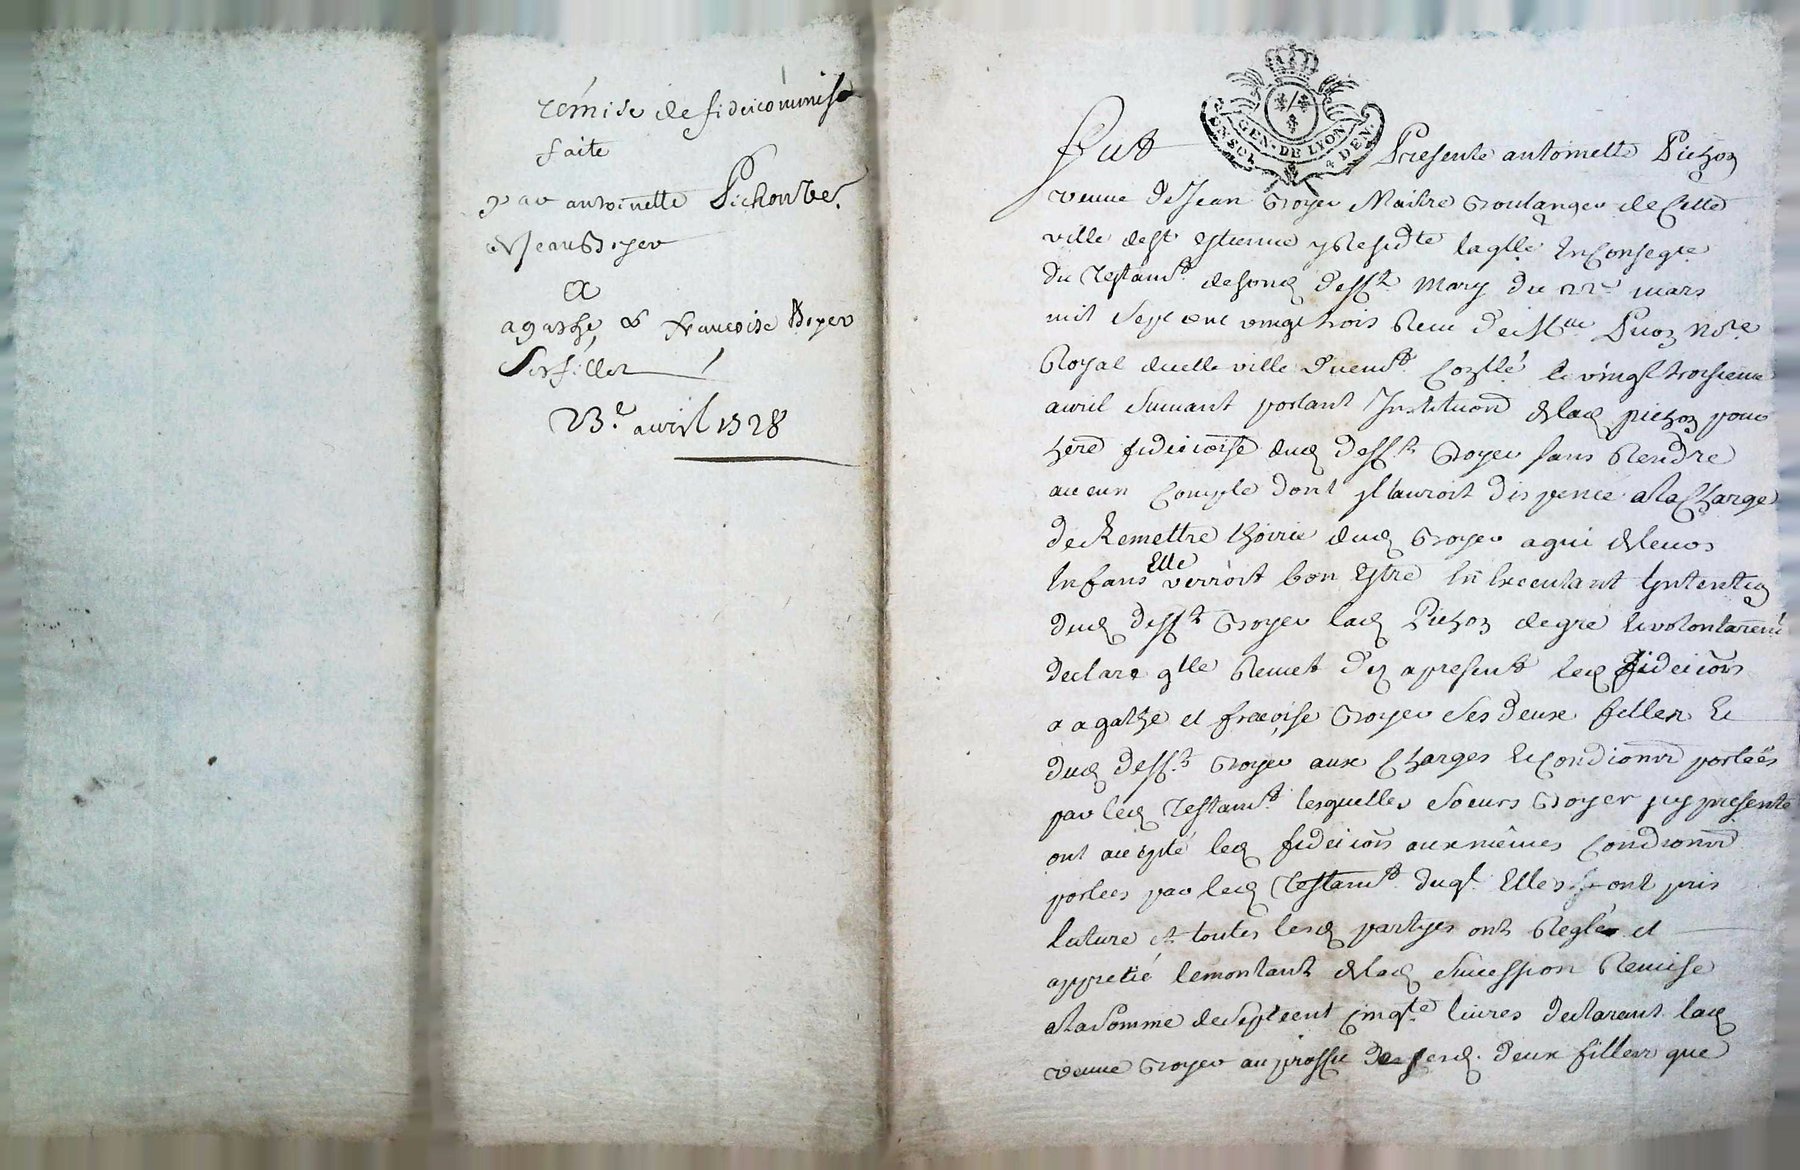 remise de fideicommis
faite
par antoinette Pichon ve.
de Jean Boyer
a
agathe & francoise Boyer
ses filles
23.e avril 1728
GEN. DE LYON
UN SOL 4 DEN.
Fut Presente antoinette Pichon
veuve de Jean Boyer Maitre Boulanger de Cette
ville de st estienne y Residte laqlle En Conseqce
du Testamt. de son d defft. mary du mars
mil sept cent vingt trois Receu de Me. Nore.
Royal de cette ville duemt. Conllé le vingt troisieme
avril suivant portant Institution de lad pichon pour
here fideicoise dud defft Boyer sans Rendre
aucun Compte dont Il lauroit dispencé a la Charge
de Remettre lhoirie dud Boyer a qui de leurs
Enfans Elle verroit bon Estre En Executant Lintention
dud defft Boyer lad Pichon de gré et volontairemt
declare qlle Remet dez apresent led fideicois
a agathe et francoise Boyer ses deux filles et
dud defft. Boyer aux Charges et Condions portées
par led Testamt. lesquelles soeurs Boyer icy presente
ont accepté led fideicois aux mêmes Condions
portées par led Testamt. duql. Elles ont pris
lecture et toutes lesd partyes ont Reglé et
apprétié le montant de lad succession Remise
a la somme de sept cent cinqte livres declarant lad
veuve Boyer au proffit de sesd. deux filles que